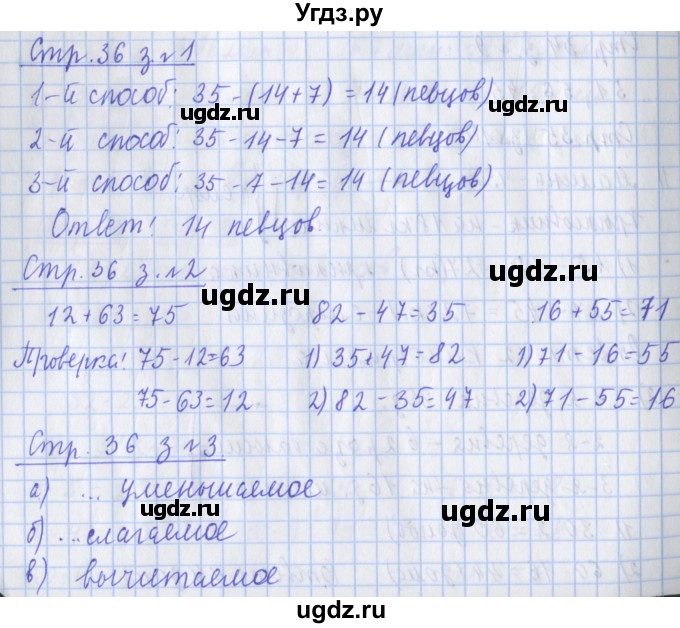 Угдз.ру
Стр. 36 з. №1
1-й способ: 35 - (14 + 7) = 14 (певцов)
ugdz.ru
2-й способ: 35 - 14 - 7 = 14 (певцов)
ugdz.ru
3-й способ: 35 - 7 - 14 = 14 (певцов)
Ответ: 14 певцов.
ugdz.ru
Стр. 36 з. №2
ugdz.ru ugdz.ru
12 + 63 = 75 82 - 47 = 35 16 + 55 = 71
Проверка: 75 - 12 = 63 1) 35 + 47 = 82 1) 71 - 16 = 55
ugdz.ru
75 - 63 = 12 2) 82 - 35 = 47 2) 71 - 55 = 16
Стр. 36 з №3
ugdz.ru ugdz.ru
а) ... уменьшаемое
ugdz.ru
б) ... слагаемое
ugdz.ru
в) вычитаемое
ugdz.ru